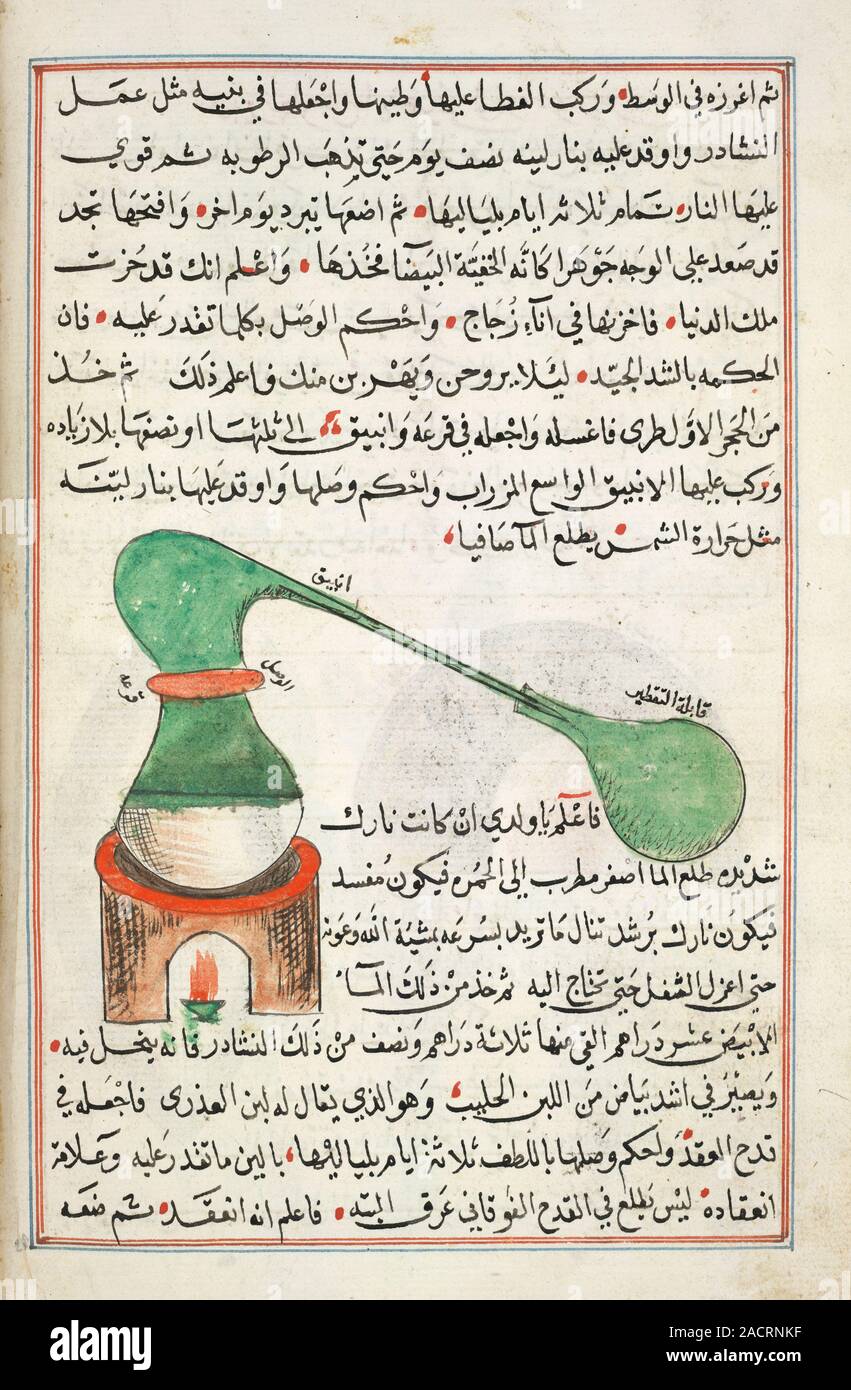 ثم اغوزه في الوسط وركب الغطا عليها وطينها واجعلها في بنيه مثل عمل
النشادر واوقد عليه بنار لينه نصف يوم حتى تذهب الرطوبه ثم قوي
عليها النار تمام ثلاثه ايام بلياليها ثم اضعها تبرد يوم اخر وافتحها تجد
قد صعد على الوجه جوهرا كانه الخفية البيضا فخذها واعلم انك قد حزت
ملك الدنيا فاخزنها في اناء زجاج واحكم الوصل بكلما تقدر عليه فان
الحكمه بالشد الجيد ليلا يروحن ويهربن منك فاعلم ذلك ثم خذ
من الحجر الاول طرى فاغسله واجعله في قرعه وانبيق الى ثلثها او نصفها بلا زياده
وركب عليها الانبيق الواسع المزراب واحكم وصلها واوقد عليها بنار لينه
مثل حرارة الشمس يطلع المآ صافيا
انبيق
الوصل
قابلة التقطير
فاعلم يا ولدي ان كانت نارك
شديده طلع الما اصفر مطرب الى الحمره فيكون مفسد
فيكون نارك برشد تنال ما تريد بسرعه بمشية الله وعونه
حتى اعزل الثفل حتى تحتاج اليه ثم خذ من ذلك المآ
الابيض عشر دراهم القي منها ثلاثة دراهم ونصف من ذلك النشادر فانه ينحل فيه
ويصير في اشد بياض من اللبن الحليب وهو الذي يقال له لبن العذرى فاجعله في
قدح العقد واحكم وصلها باللطف ثلاثة ايام بلياليها بالين ما تقدر عليه وعلامة
انعقاده ليس يطلع في القدح الفوقاني عرق البته فاعلم انه انعقد ثم ضعه
alamy
Image ID: 2ACRNKF
www.alamy.com